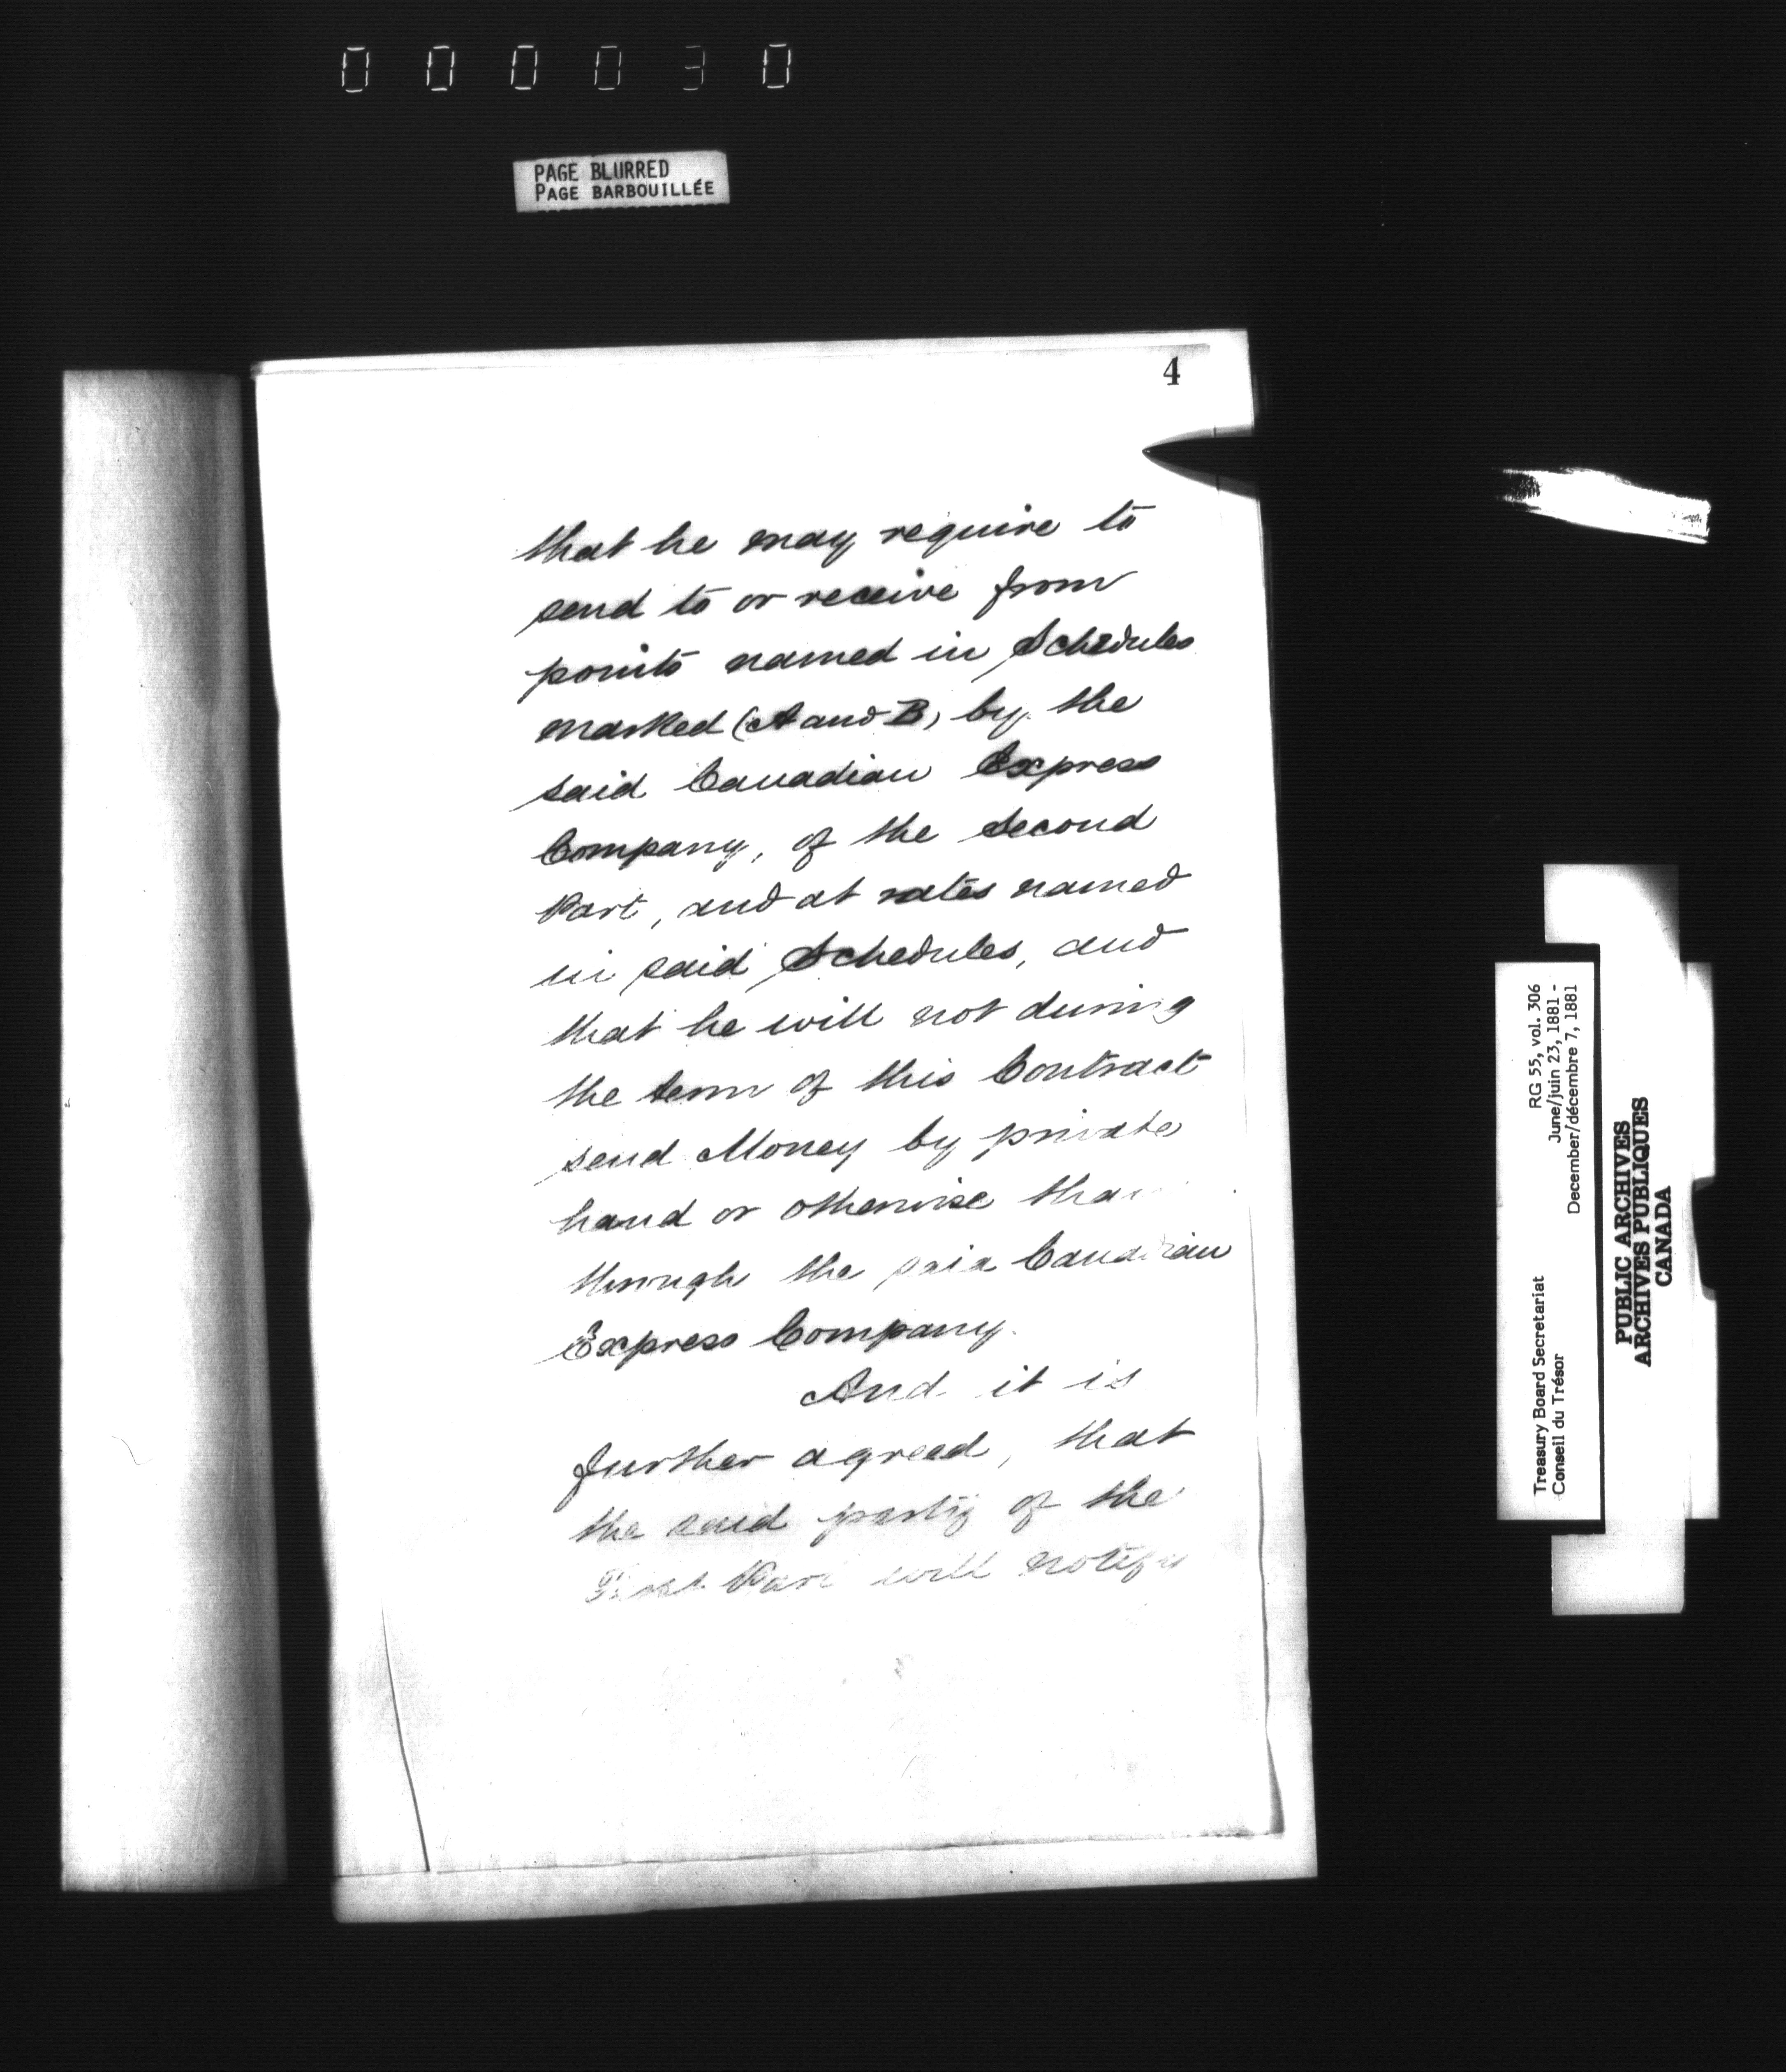 000030
PAGE BLURRED
PAGE BARBOUILLÉE
4
that he may require to
send to or receive from
points named in Schedules
marked (A and B) by the
said Canadian Express
Company, of the Second
Part, and at rates named
in said Schedules, and
that he will not during
the term of this Contract
send Money by private
hand or otherwise than
through the said Canadian
Express Company.
And it is
further agreed, that
the said party of the
First Part will notify
Treasury Board Secretariat
Conseil du Trésor
RG 55, vol. 306
June/juin 23, 1881 -
December/décembre 7, 1881
PUBLIC ARCHIVES
ARCHIVES PUBLIQUES
CANADA